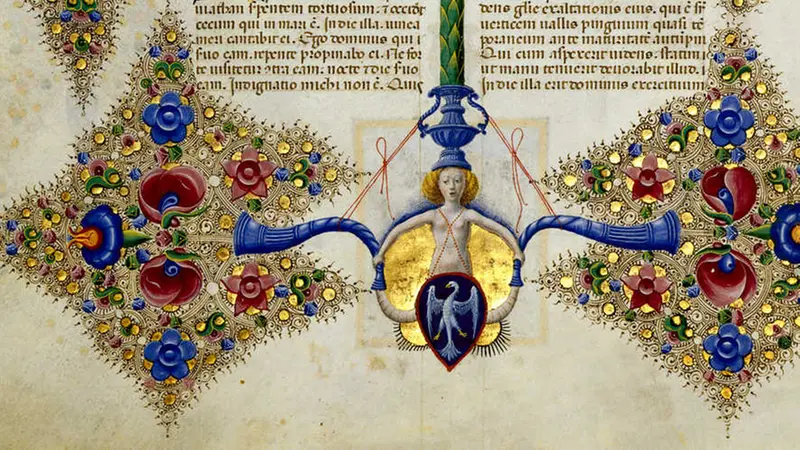 uiathan s'pentem tortuosum. ⁊ occidet
cecum qui in mari ē. In die illa. uinea
meri cantabit ei. Ego dominus qui s̄
suo eam. repente propinabo ei. Ne for
te uisitetur ꝯtra eam. nocte ⁊ die suo
eam. Indignatio michi non ē. Quis
dens glīe exaltationis eius. qui ē s̄
uerticem uallis pinguium quasi tē
poraneum ante maturitatē autūpni
Qui cum aspexerit uidens. statim
ut manu tenuerit deuorabit illud.
In die illa erit dominus exercituum